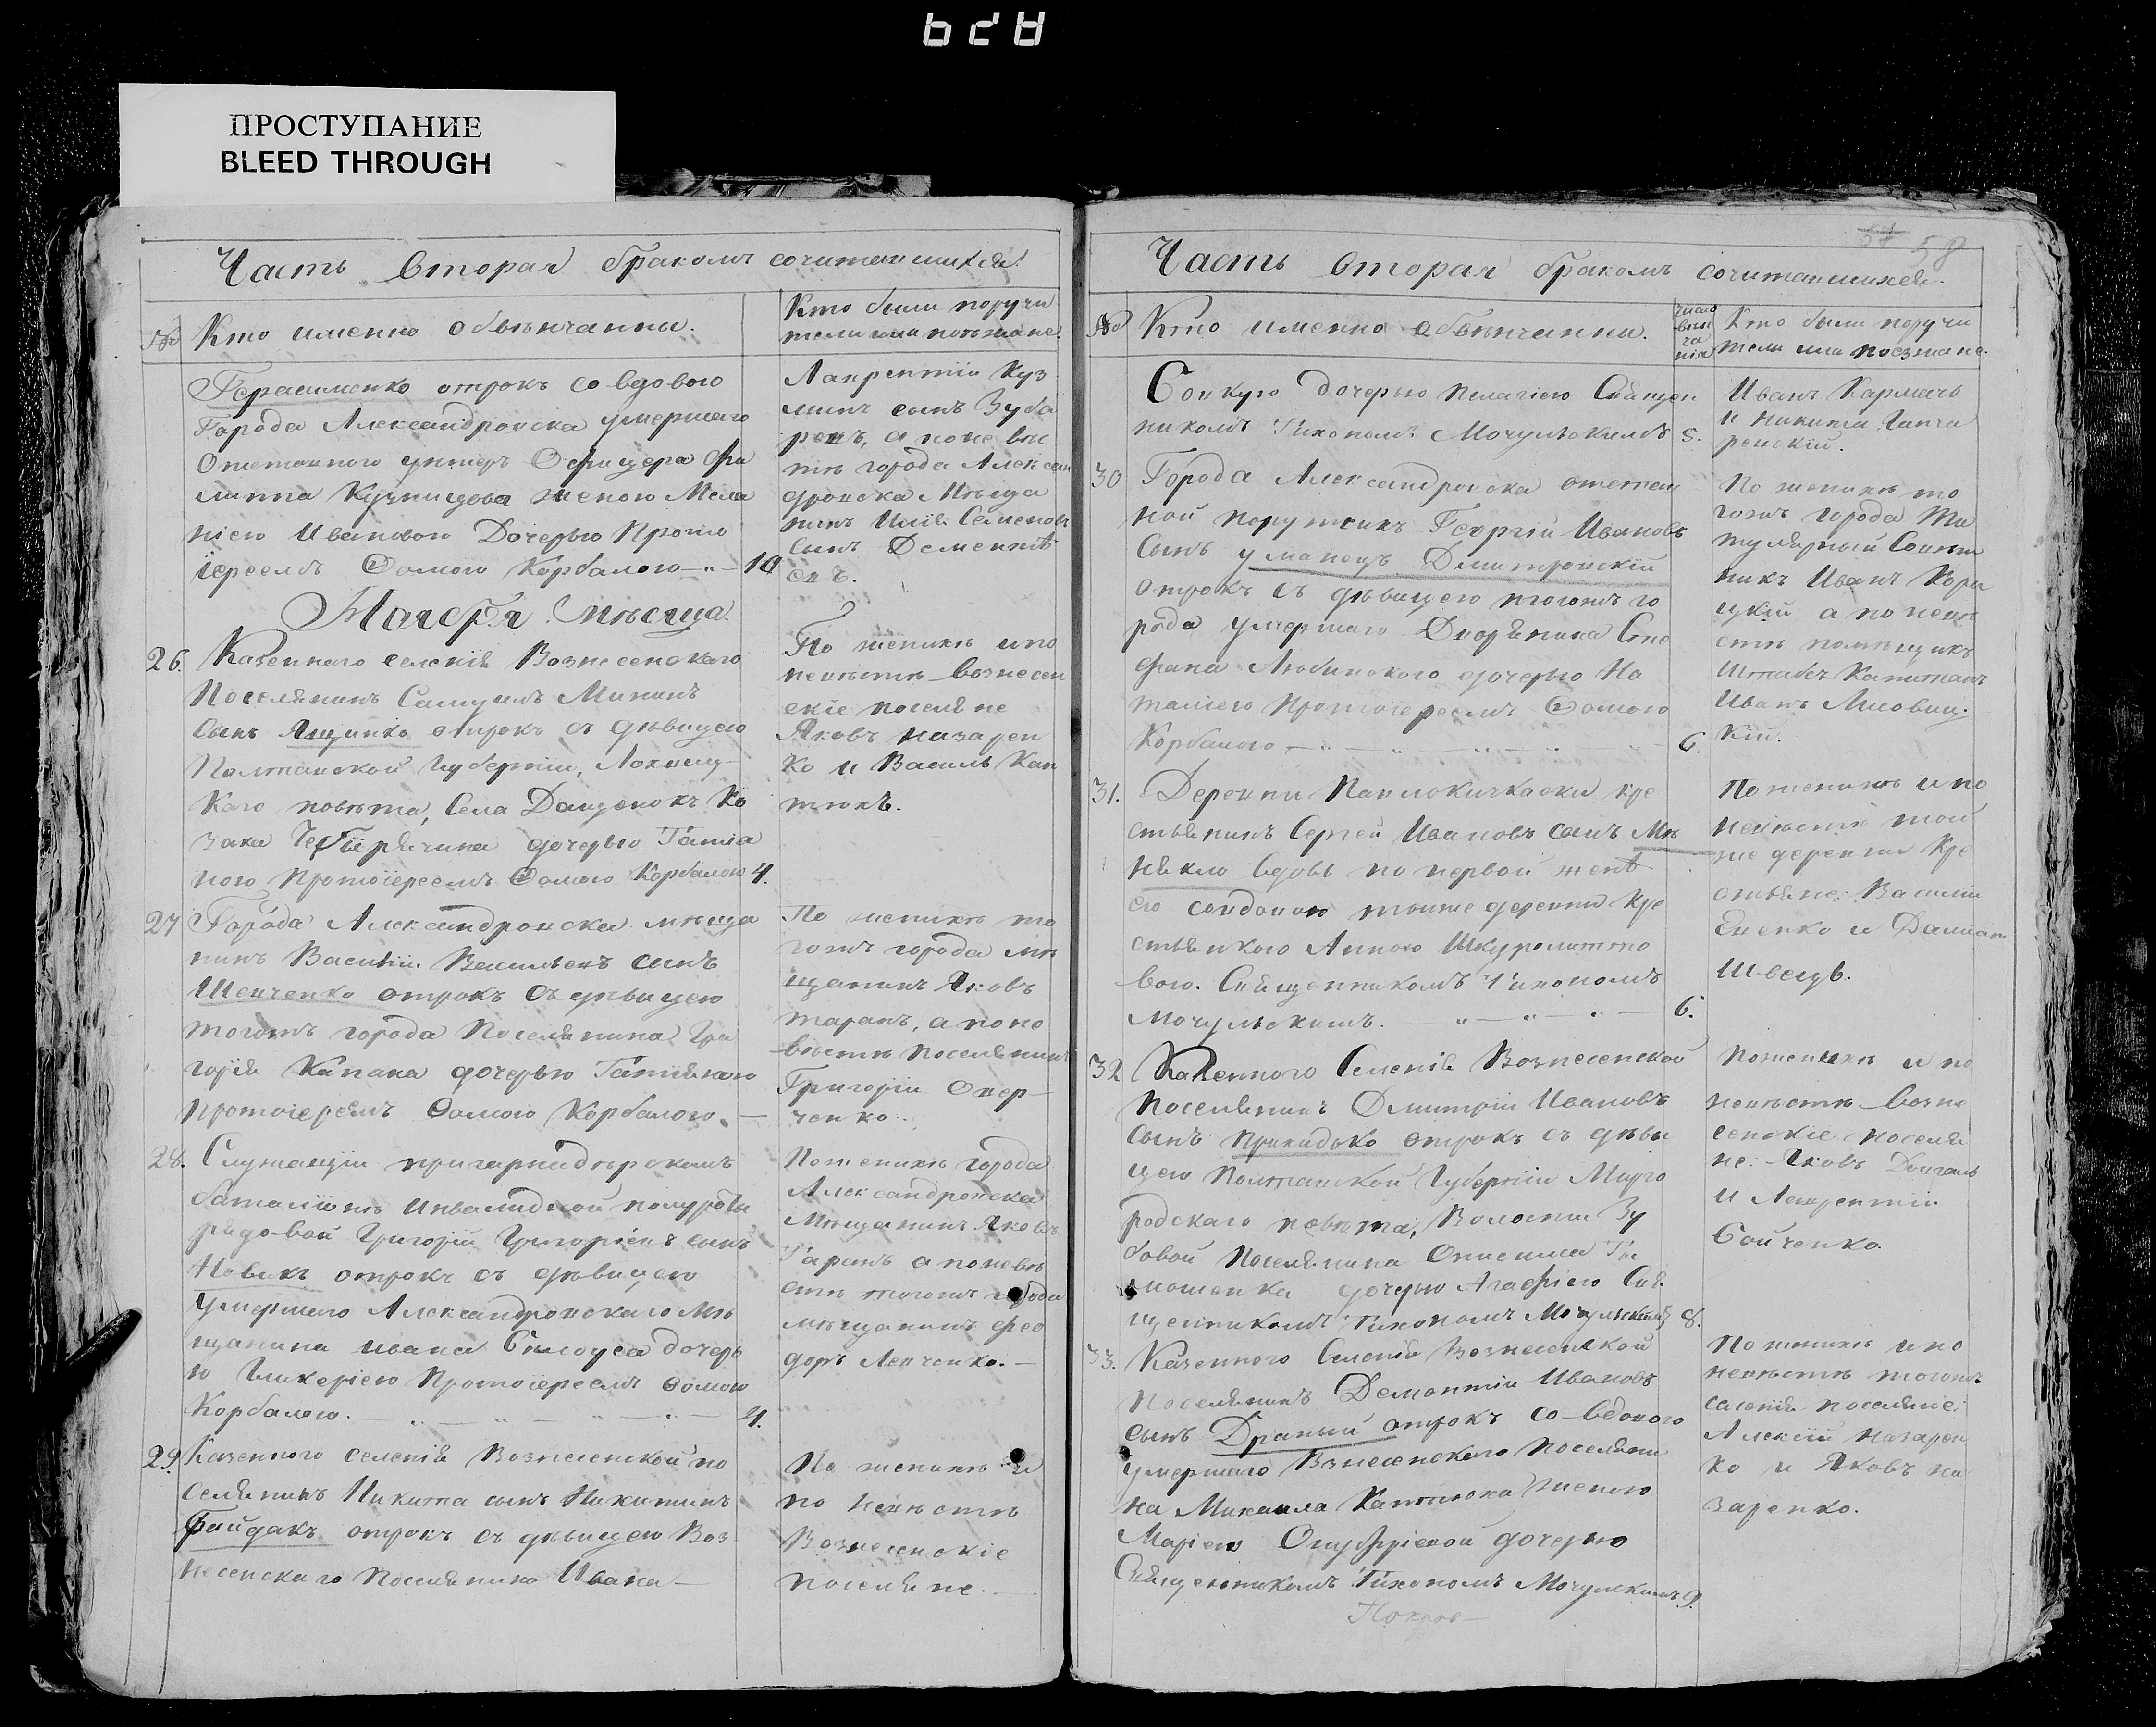 628
ПРОСТУПАНИЕ
BLEED THROUGH
Часть вторая бракомъ сочитавшихся.
№ Кто именно обвѣнчанны.
Кто были поручи
тели или поезжане.
Герасименко отрокъ со вдовою
Города Александровска умершаго
Отставного ундеръ Офицера Фи
липпа Кузницова женою Мела
ніею Ивановою Дочерью Прото
іереемъ Фомою Корбалою 10
Лаврентій Куз
минъ сынъ Зуба
ревъ, а поневѣс
тѣ города Алексан
дровска Мѣща
нинъ Илія Семеновъ
сынъ Дементі
евъ.
Ноября мѣсяца.
26. Казенного селенія Вознесенского
Поселянинъ Самуилъ Мининъ
сынъ Ященко отрокъ съ дѣвицею
Полтавской Губерніи, Лохвиц
каго повѣта, Села Данценокъ Ко
зака дочерью Татіа
ною Протоіереемъ Фомою Корбалою 4.
По женихѣ и по
невѣстѣ вознесен
скіе поселяне
Яковъ Назарен
ко и Василь Кап
тюкъ.
27 Города Александровска мѣща
нинъ Василій Васильевъ сынъ
Шевченко отрокъ съ дѣвицею
тогожъ города Поселянина Гри
горія Капака дочерью Татіяною
Протоіереемъ Фомою Корбалою.
По женихѣ то
гожъ города мѣ
щанинъ Яковъ
таранъ, а по не
вѣстѣ поселянинъ
Григорій Овер
ченко.
28. Служащій пригарнидзѣрскомъ
баталіонѣ Инвалидной полуроты
рядовой Григорій Григоріевъ сынъ
Новикъ отрокъ съ дѣвицею
умершаго Александровскаго Мѣ
щанина ивана Бѣлоуса дочерь
ю Гликеріею Протоіереемъ Фомою
Корбалою. 4.
Поженихѣ города
Александровска
Мѣщанинъ Яковъ
Таранъ а поневѣ
стѣ тогожъ города
мѣщанинъ Фео
доръ Левченко.
29. Казенного селенія Вознесенской по
селянинъ Никита сынъ Никитинъ
Файдакъ отрокъ съ дѣвицею Воз
несенскаго Поселянина Ивана
По женихѣ и
по невѣстѣ
Вознесенскіе
поселяне.
58
Часть вторая бракомъ сочитавшихся.
№ Кто именно обвѣнчанны.
число
вѣн
ча
нія
Кто были поручи
тели или поезжане.
дочерью пелагіею Священ
никомъ Тихономъ Мочульскимъ 5.
Иванъ Кармачъ
и Никита Ганча
ревскій.
30 Города Александровска отстав
ной порутчикъ Георгій Ивановъ
сынъ уманецъ Дмитровскій
отрокъ съ дѣвицею тогожъ го
рода умершаго Дворянина Сте
фана Любинского дочерью На
таліею Протоіереемъ Фомою
Корбалою 6.
По женихѣ то
гожъ города Ти
тулярный Совѣт
никъ Иванъ Кори
цкій а по невѣ
стѣ помѣщикъ
Штабсъ Капитанъ
Иванъ Лисовиц
кій.
31. Деревни Павлокичкаски кре
стьянинъ Сергей Ивановъ сынъ Мѣ
няйло вдовъ по первой женѣ
его совдовою тоиже деревни Кре
стьянкою Анною Шкуролитто
вою. Священникомъ Тихономъ
Мочульскимъ. 6.
Поженихѣ и по
невѣстѣ той
же деревни Кре
стьяне: Василій
Еценко и Даміан
Швецъ.
32 Казенного Селенія Вознесенской
поселянинъ Димитрій Ивановъ
сынъ Прикидько отрокъ съ дѣви
цею Полтавской Губерніи Мирго
родскаго повѣта, Волости Зу
бовой Поселянина Онисима Ти
мошенка дочерью Агафіею Свя
щенникомъ Тихономъ Мочульскимъ 8.
Поженихѣ и по
невѣстѣ возне
сенскіе поселя
не: Яковъ Довгаль
и Лаврентій
Бойченко.
33. Казенного Селенія Вознесенской
поселянинъ Дементій Ивановъ
сынъ Драный отрокъ со вдовою
умершаго Вознесенского поселяни
на Михаила Каптюка женою
Маріею Онуфріевой дочерью
Священникомъ Тихономъ Мочульскимъ 9.
По женихѣ и по
невѣстѣ тогожъ
селенія поселяне;
Алексій Назарен
ко и Яковъ На
заренко.